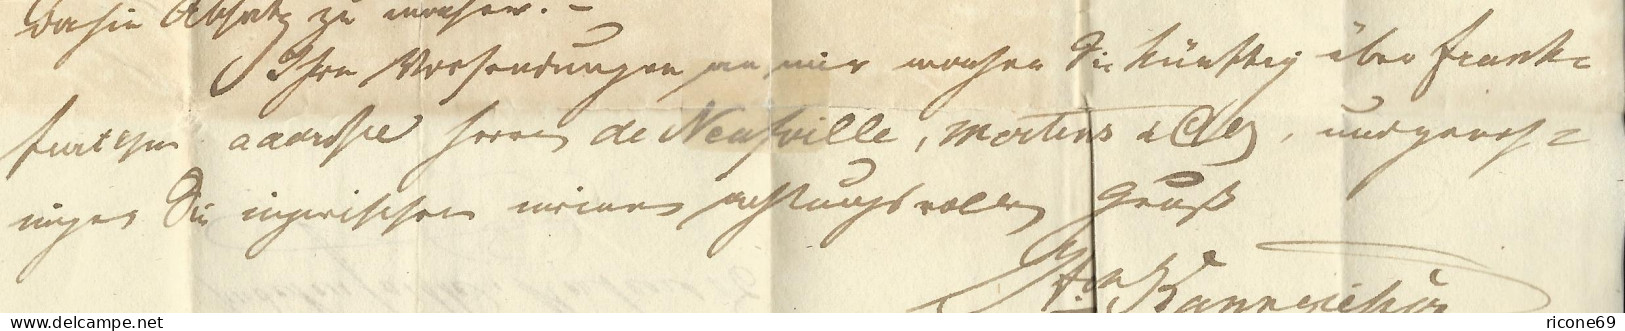 dahin Absatz zu machen. –
Ihre Versendungen an mir machen Sie künftig über Frank=
furt
Herren de Neufville, Mertens & Co, und geneh=
migen Sie inzwischen meinen achtungsvollen Gruß
ricone69